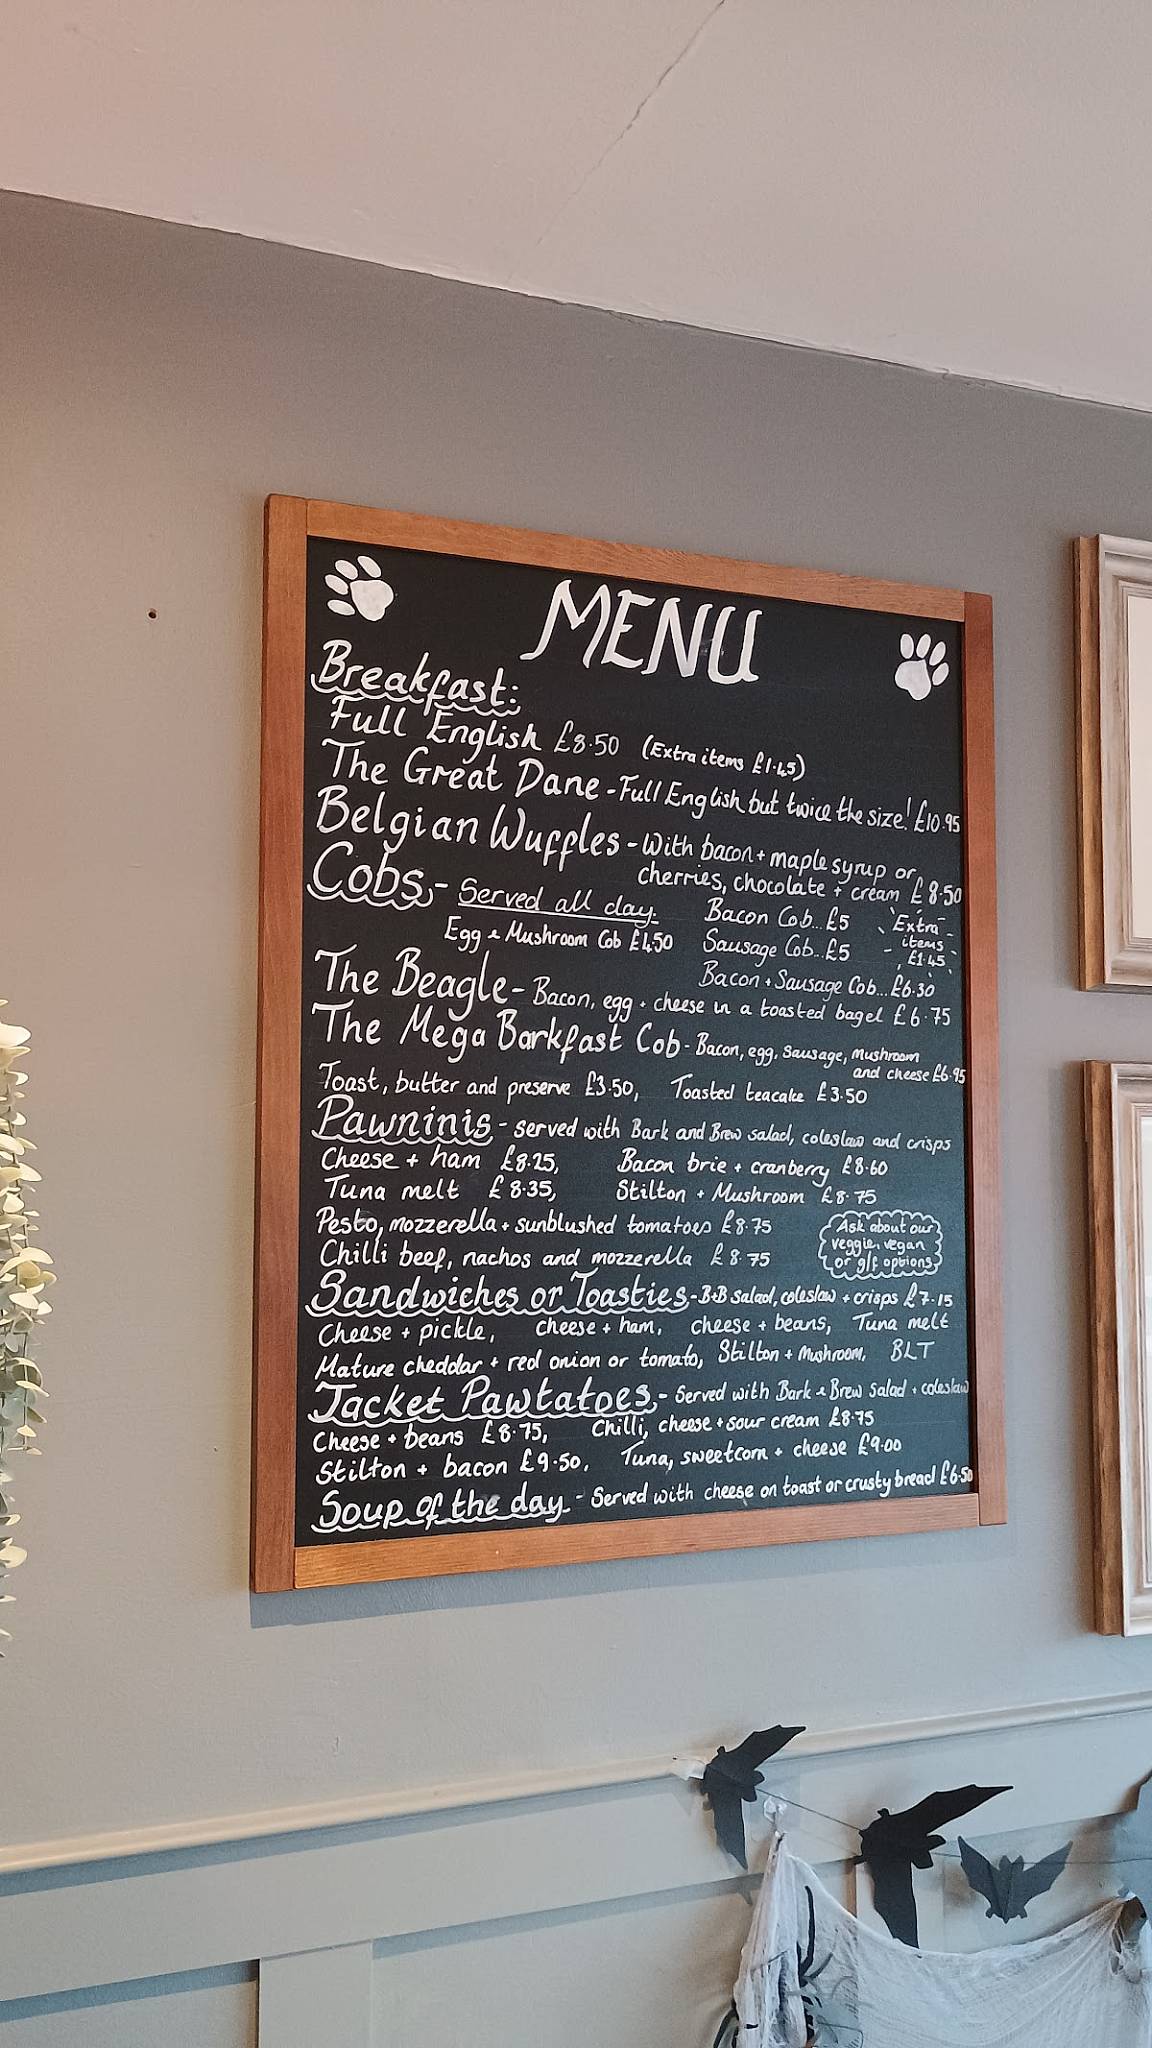 MENU
Breakfast:
Full English £8.50 (Extra items £1.45)
The Great Dane - Full English but twice the size! £10.95
Belgian Wuffles - With bacon + maple syrup or
cherries, chocolate + cream £8.50
Cobs - Served all day.
Bacon Cob...£5
Egg & Mushroom Cob £4.50
Sausage Cob...£5
Bacon + Sausage Cob...£6.30
Extra
items
£1.45
The Beagle - Bacon, egg + cheese in a toasted bagel £6.75
The Mega Barkfast Cob - Bacon, egg, sausage, mushroom
and cheese £6.95
Toast, butter and preserve £3.50, Toasted teacake £3.50
Pawninis - served with Bark and Brew salad, coleslaw and crisps
Cheese + ham £8.25, Bacon brie + cranberry £8.60
Tuna melt £8.35, Stilton + Mushroom £8.75
Pesto, mozzerella + sunblushed tomatoes £8.75
Chilli beef, nachos and mozzerella £8.75
Ask about our
veggie, vegan
or g/f options
Sandwiches or Toasties - B+B salad, coleslaw + crisps £7.15
Cheese + pickle, cheese + ham, cheese + beans, Tuna melt
Mature cheddar + red onion or tomato, Stilton + Mushroom, BLT
Jacket Pawtatoes - Served with Bark & Brew salad + coleslaw
Cheese + beans £8.75, Chilli, cheese + sour cream £8.75
Stilton + bacon £9.50, Tuna, sweetcorn + cheese £9.00
Soup of the day - Served with cheese on toast or crusty bread £6.50